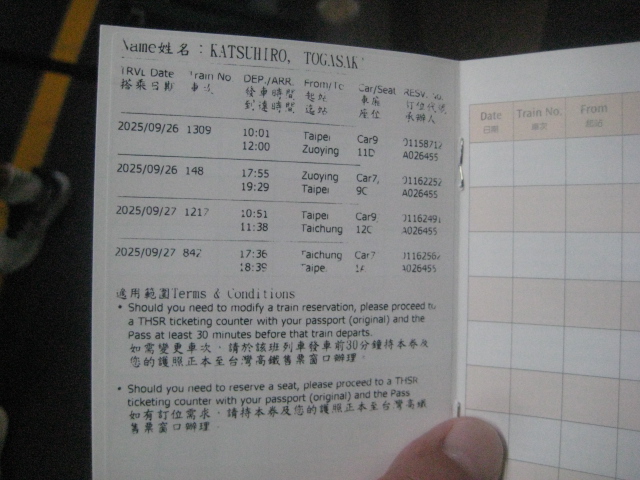 Name姓名：KATSUHIRO, TOGASAK
TRVL Date Train No. DEP./ARR. From/To Car/Seat RESV. No.
搭乘日期 車次 發車時間 起站 車廂 訂位代號
到達時間 迄站 座位 承辦人
2025/09/26 1309 10:01 Taipei Car9 01158712
12:00 Zuoying 11D A026455
2025/09/26 148 17:55 Zuoying Car7 01162252
19:29 Taipei 9C A026455
2025/09/27 1217 10:51 Taipei Car9 01162491
11:38 Taichung 12C A026455
2025/09/27 842 17:36 Taichung Car7
18:39 Taipei A026455
適用範圍Terms & Conditions
• Should you need to modify a train reservation, please proceed to
a THSR ticketing counter with your passport (original) and the
Pass at least 30 minutes before that train departs.
如需變更車次，請於該班列車發車前30分鐘持本券及
您的護照正本至台灣高鐵售票窗口辦理。
• Should you need to reserve a seat, please proceed to a THSR
ticketing counter with your passport (original) and the Pass
如有訂位需求，請持本券及您的護照正本至台灣高鐵
售票窗口辦理。
Date Train No. From
日期 車次 起站